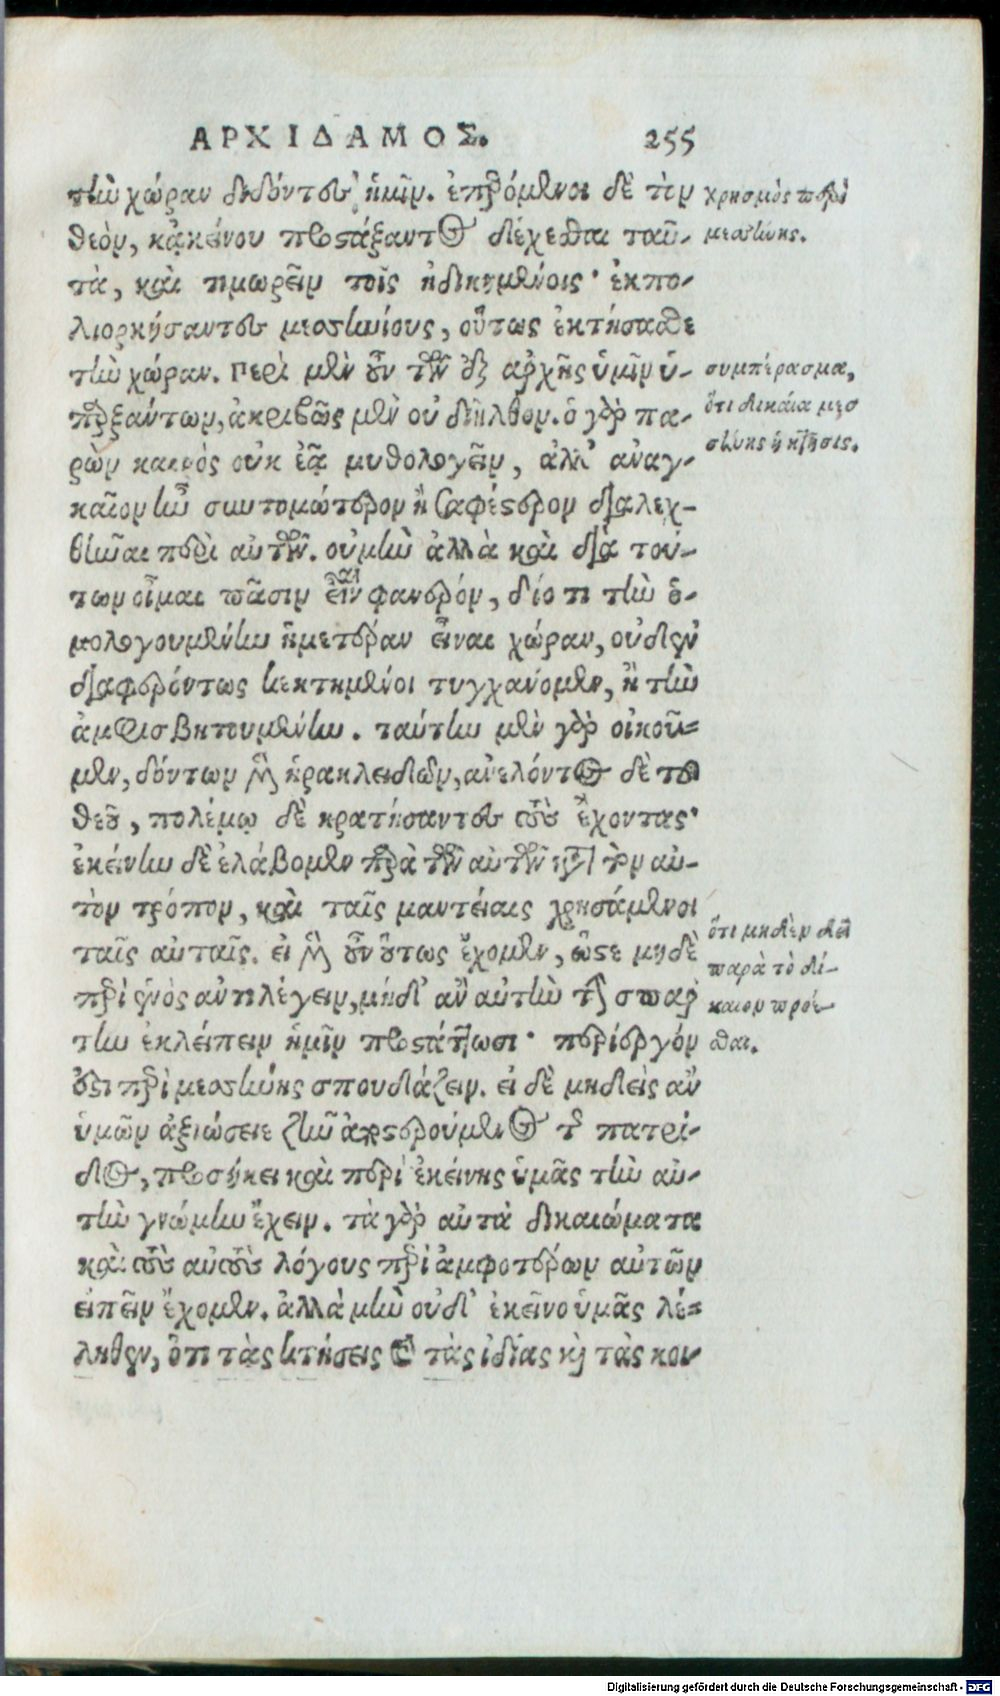 ΑΡΧΙΔΑΜΟΣ. 255
τὴν χώραν διδόντες ἡμῖν. ἐπερόμενοι δὲ τὸν
θεὸν, κᾀκείνου προστάξαντος δέχεσθαι ταῦ-
τὰ, καὶ τιμωρεῖν τοῖς ἠδικημένοις· ἐκπο-
λιορκήσαντες μεσσηνίους, οὕτως ἐκτήσασθε
τὴν χώραν. Περὶ μὲν οὖν τῶν ἐξ ἀρχῆς ὑμῖν ὑ-
παρξάντων, ἀκριβῶς μὲν οὐ διῆλθον. ὁ γὰρ πα-
ρὼν καιρὸς οὐκ ἐᾷ μυθολογεῖν, ἀλλ' ἀναγ-
καῖον ἦν συντομώτερον ἢ σαφέστερον διαλεχ-
θῆναι περὶ αὐτῶν. οὐ μὴν ἀλλὰ καὶ διὰ τού-
των οἶμαι πᾶσιν εἶναι φανερόν, διότι τὴν ὁ-
μολογουμένην ἡμετέραν εἶναι χώραν, οὐδὲν
διαφερόντως κεκτημένοι τυγχάνομεν, ἢ τὴν
ἀμφισβητουμένην. ταύτην μὲν γὰρ οἰκοῦ-
μεν, δόντων μὲν ἡρακλειδῶν, ἀνελόντος δὲ τοῦ
θεοῦ, πολέμῳ δὲ κρατήσαντες τοὺς ἔχοντας·
ἐκείνην δὲ ἐλάβομεν παρὰ τῶν αὐτῶν κατὰ τὸν αὐ-
τὸν τρόπον, καὶ ταῖς μαντείαις χρησάμενοι
ταῖς αὐταῖς. εἰ μὲν οὖν οὕτως ἔχομεν, ὥστε μηδὲ
περὶ ἑνὸς ἀντιλέγειν, μήδ' ἂν αὐτὴν τὴν σπάρ
την ἐκλείπειν ἡμῖν προστάττωσι· περίεργόν
ἐστι περὶ μεσσήνης σπουδάζειν. εἰ δὲ μηδεὶς ἂν
ὑμῶν ἀξιώσειε ζῆν ἀποστερούμενος τῆς πατρί-
δος, προσήκει καὶ περὶ ἐκείνης ὑμᾶς τὴν αὐ-
τὴν γνώμην ἔχειν. τὰ γὰρ αὐτὰ δικαιώματα
καὶ τοὺς αὐτοὺς λόγους περὶ ἀμφοτέρων αὐτῶν
εἰπεῖν ἔχομεν. ἀλλὰ μὴν οὐδ' ἐκεῖνο ὑμᾶς λέ-
ληθεν, ὅτι τὰς κτήσεις καὶ τὰς ἰδίας κὶ τὰς κοι-
χρησμὸς περὶ
μεσσήνης.
συμπέρασμα,
ὅτι δικαία μεσ
σήνης ἡ κτῆσις.
ὅτι μηδὲν δεῖ
παρὰ τὸ δί-
καιον πρόε-
σθαι.
Digitalisierung gefördert durch die Deutsche Forschungsgemeinschaft - DFG